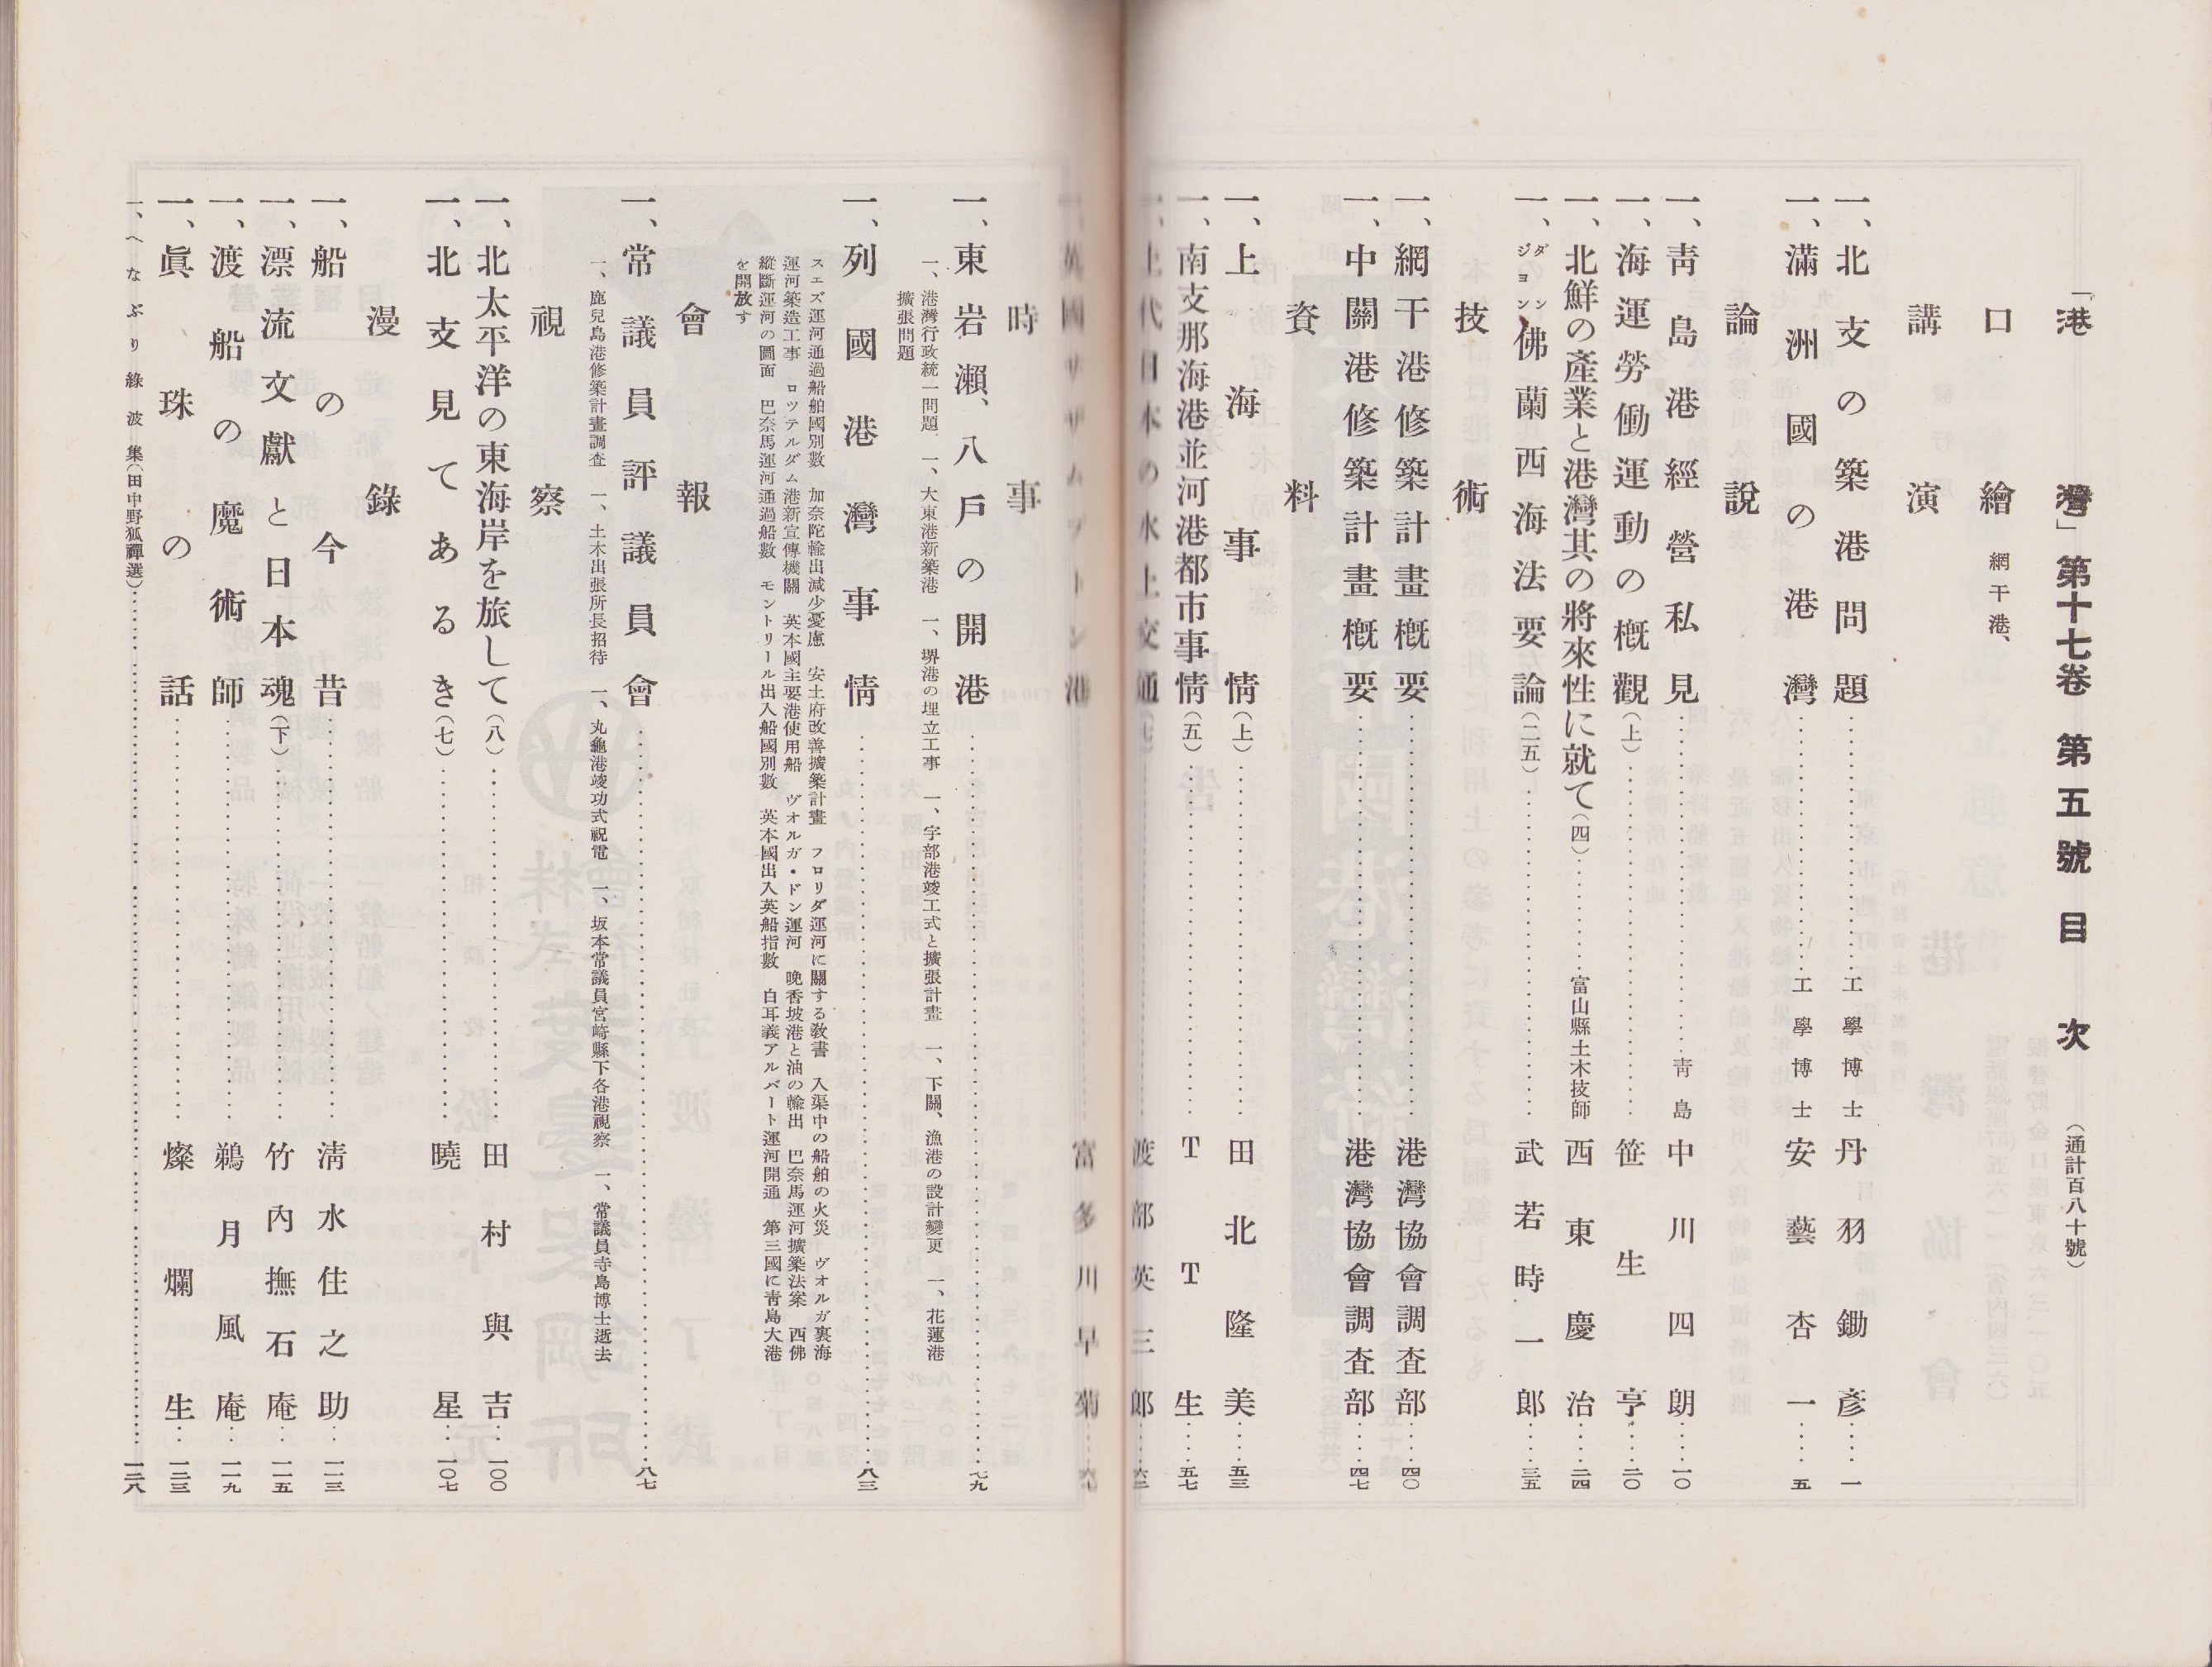 「港灣」第十七卷 第五號 目次 (通計百八十號)
口繪 網干港、
講演
一、北支の築港問題……工學博士 丹羽鋤彥……一
一、滿洲國の港灣……工學博士 安藝杏一……五
論說
一、靑島港經營私見……靑島 中川四朗……一〇
一、海運勞働運動の槪觀(上)……笹生亨……二〇
一、北鮮の產業と港灣其の將來性に就て(四)……富山縣土木技師 西東慶治……二四
一、ダンジョン佛蘭西海法要論(二五)……武若時一郞……三五
技術
一、網干港修築計畫槪要……港灣協會調査部……四〇
一、中關港修築計畫槪要……港灣協會調査部……四七
資料
一、上海事情(上)……田北隆美……五三
一、南支那海港並河港都市事情(五)……TT生……五七
一、上代日本の水上交通(七)……渡部英三郞……六三
一、英國サザムプトン港……富多川早菊
時事
一、東岩瀨、八戶の開港……七九
一、港灣行政統一問題 一、大東港新築港 一、堺港の埋立工事 一、宇部港竣工式と擴張計畫 一、下關、漁港の設計變更 一、花蓮港
擴張問題
一、列國港灣事情……八三
スエズ運河通過船舶國別數 加奈陀輸出減少憂慮 安土府改善擴築計畫 フロリダ運河に關する敎書 入渠中の船舶の火災 ヴオルガ裏海
運河築造工事 ロツテルダム港新宣傳機關 英本國主要港使用船 ヴオルガ・ドン運河 晚香坡港と油の輸出 巴奈馬運河擴築法案 西佛
縱斷運河の圖面 巴奈馬運河通過船數 モントリール出入船國別數 英本國出入英船指數 白耳義アルバート運河開通 第三國に靑島大港
を開放す
會報
一、常議員評議員會……八七
一、鹿兒島港修築計畫調査 一、土木出張所長招待 一、丸龜港竣功式祝電 一、坂本常議員宮崎縣下各港視察 一、常議員寺島博士逝去
視察
一、北太平洋の東海岸を旅して(八)……田村與吉……一〇〇
一、北支見てあるき(七)……曉星……一〇七
漫錄
一、船の今昔……淸水住之助……一一三
一、漂流文獻と日本魂(下)……竹內撫石庵……一一五
一、渡船の魔術師……鵜月風庵……一一九
一、眞珠の話……燦爛生……一二三
一、へなぶり綠波集(田中野狐禪選)……一二八